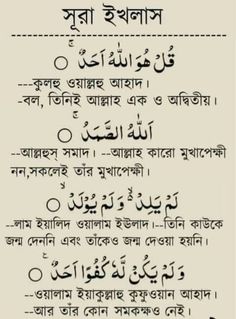 সূরা ইখলাস
قُلْ هُوَ اللّٰهُ اَحَدٌ ۚ
---কুলহু ওয়াল্লাহু আহাদ।
-বল, তিনিই আল্লাহ এক ও অদ্বিতীয়।
اَللّٰهُ الصَّمَدُ ۚ
--আল্লাহুস্ সমাদ। --আল্লাহ কারো মুখাপেক্ষী
নন,সকলেই তাঁর মুখাপেক্ষী।
لَمْ يَلِدْ ۙ وَلَمْ يُوْلَدْ ۙ
--লাম ইয়ালিদ ওয়ালাম ইউলাদ।--তিনি কাউকে
জন্ম দেননি এবং তাঁকেও জন্ম দেওয়া হয়নি।
وَلَمْ يَكُنْ لَّهٗ كُفُوًا اَحَدٌ ۚ
--ওয়ালাম ইয়াকুল্লাহু কুফুওয়ান আহাদ।
--আর তাঁর কোন সমকক্ষও নেই।